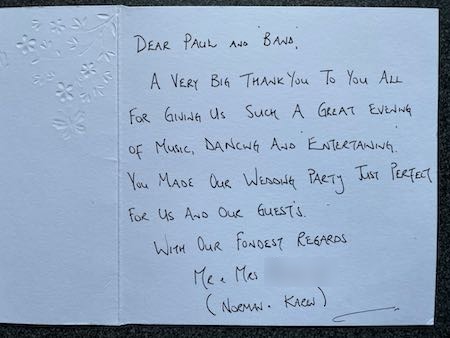 Dear Paul and 'Band',
A Very Big Thank You To You All
For Giving Us Such A Great Evening
of Music, Dancing And Entertaining.
You Made Our Wedding Party Just Perfect
For Us And Our Guest's.
With Our Fondest Regards
Mr & Mrs
(Norman & Karen)